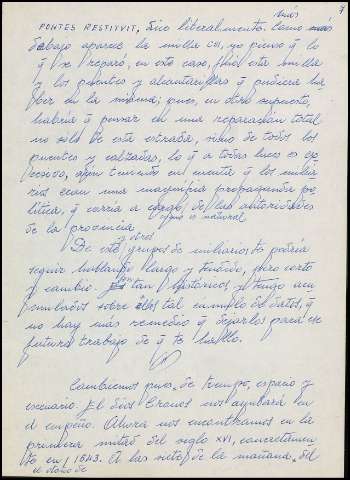 7
más
PONTES RESTITVIT, sino liberalmente. Como más
debajo aparece la milla CIII, yo pienso q̄ lo
q̄ se reparó, en este caso, fué esta milla
y los puentes y alcantarillas q̄ pudiera ha-
ber en la misma; pues, en otro supuesto,
habría q̄ pensar en una reparación total
no sólo de esta estrada, sino de todos los
puentes y calzadas, lo q̄ a todas luces es ex-
cesivo, aún teniendo en cuenta q̄ los milia-
rios eran una magnífica propaganda po-
lítica, q̄ corría a cargo, como es natural
de las autoridades
de la provincia
De este y otros grupos de miliarios os podría
seguir hablando largo y tendido, pero corto
y cambio. Son tan históricos y tengo acu-
mulados sobre ellos tal cúmulo de datos, q̄
no hay más remedio q̄ dejarlos para ese
futuro trabajo de q̄ te hablo.
Cambiemos pues, de tiempo, espacio y
escenario. El dios Cronos nos ayudará en
el empeño. Ahora nos encontramos en la
primera mitad del siglo XVI, concretamen-
te en 1543. A las siete de la mañana, del